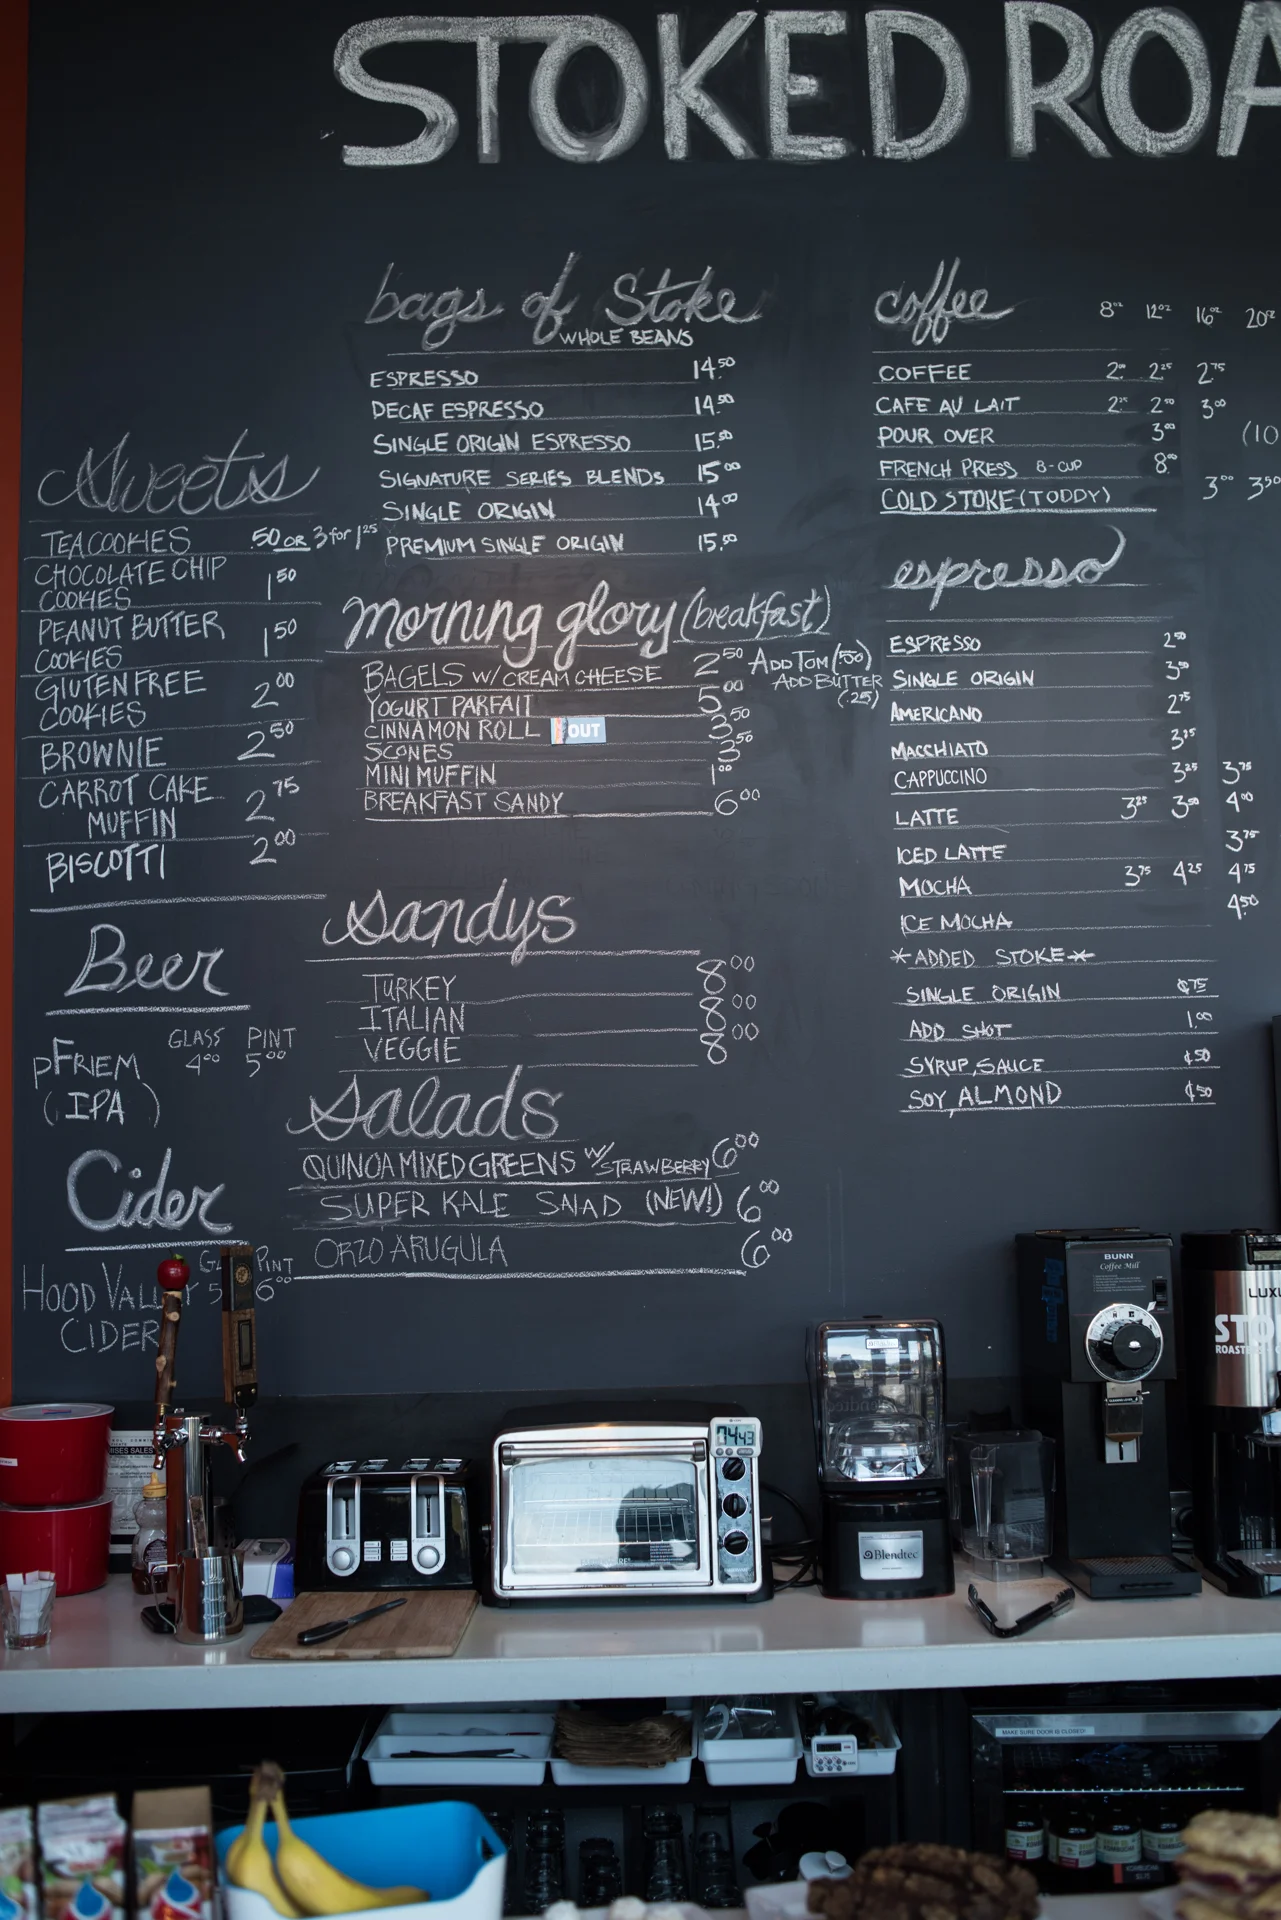 STOKED ROA
bags of Stoke
WHOLE BEANS
ESPRESSO 14.50
DECAF ESPRESSO 14.50
SINGLE ORIGIN ESPRESSO 15.50
SIGNATURE SERIES BLENDS 15.00
SINGLE ORIGIN 14.00
PREMIUM SINGLE ORIGIN 15.50
coffee 8oz 12oz 16oz 20oz
COFFEE 2.00 2.25 2.75
CAFE AU LAIT 2.25 2.50 3.00
POUR OVER 3.00 (10
FRENCH PRESS 8-CUP 8.00
COLD STOKE (TODDY) 3.00 3.50
Sweets
TEA COOKIES .50 OR 3 for 1.25
CHOCOLATE CHIP
COOKIES 1.50
PEANUT BUTTER
COOKIES 1.50
GLUTEN FREE
COOKIES 2.00
BROWNIE 2.50
CARROT CAKE
MUFFIN 2.75
BISCOTTI 2.00
morning glory (breakfast)
BAGELS W/ CREAM CHEESE 2.50 ADD TOM (50)
ADD BUTTER
(.25)
YOGURT PARFAIT 5.00
CINNAMON ROLL OUT 3.50
SCONES 3.50
MINI MUFFIN 1.00
BREAKFAST SANDY 6.00
espresso
ESPRESSO 2.50
SINGLE ORIGIN 3.50
AMERICANO 2.75
MACCHIATO
CAPPUCCINO 3.25 3.75
LATTE 3.25 3.50 4.00
ICED LATTE 3.75
MOCHA 3.75 4.25 4.75
ICE MOCHA 4.50
*ADDED STOKE*
SINGLE ORIGIN ¢75
ADD SHOT 1.00
SYRUP, SAUCE ¢50
SOY, ALMOND ¢50
Sandys
TURKEY 8.00
ITALIAN 8.00
VEGGIE 8.00
Salads
QUINOA MIXED GREENS W/ STRAWBERRY 6.00
SUPER KALE SALAD (NEW!) 6.00
ORZO ARUGULA 6.00
Beer
GLASS PINT
pFRIEM 4.00 5.00
(IPA)
Cider
GL PINT
HOOD VALLEY 5 6.00
CIDER
BUNN
Coffee Mill
LUXU
STO
ROAST
Blendtec
MAKE SURE DOOR IS CLOSED!